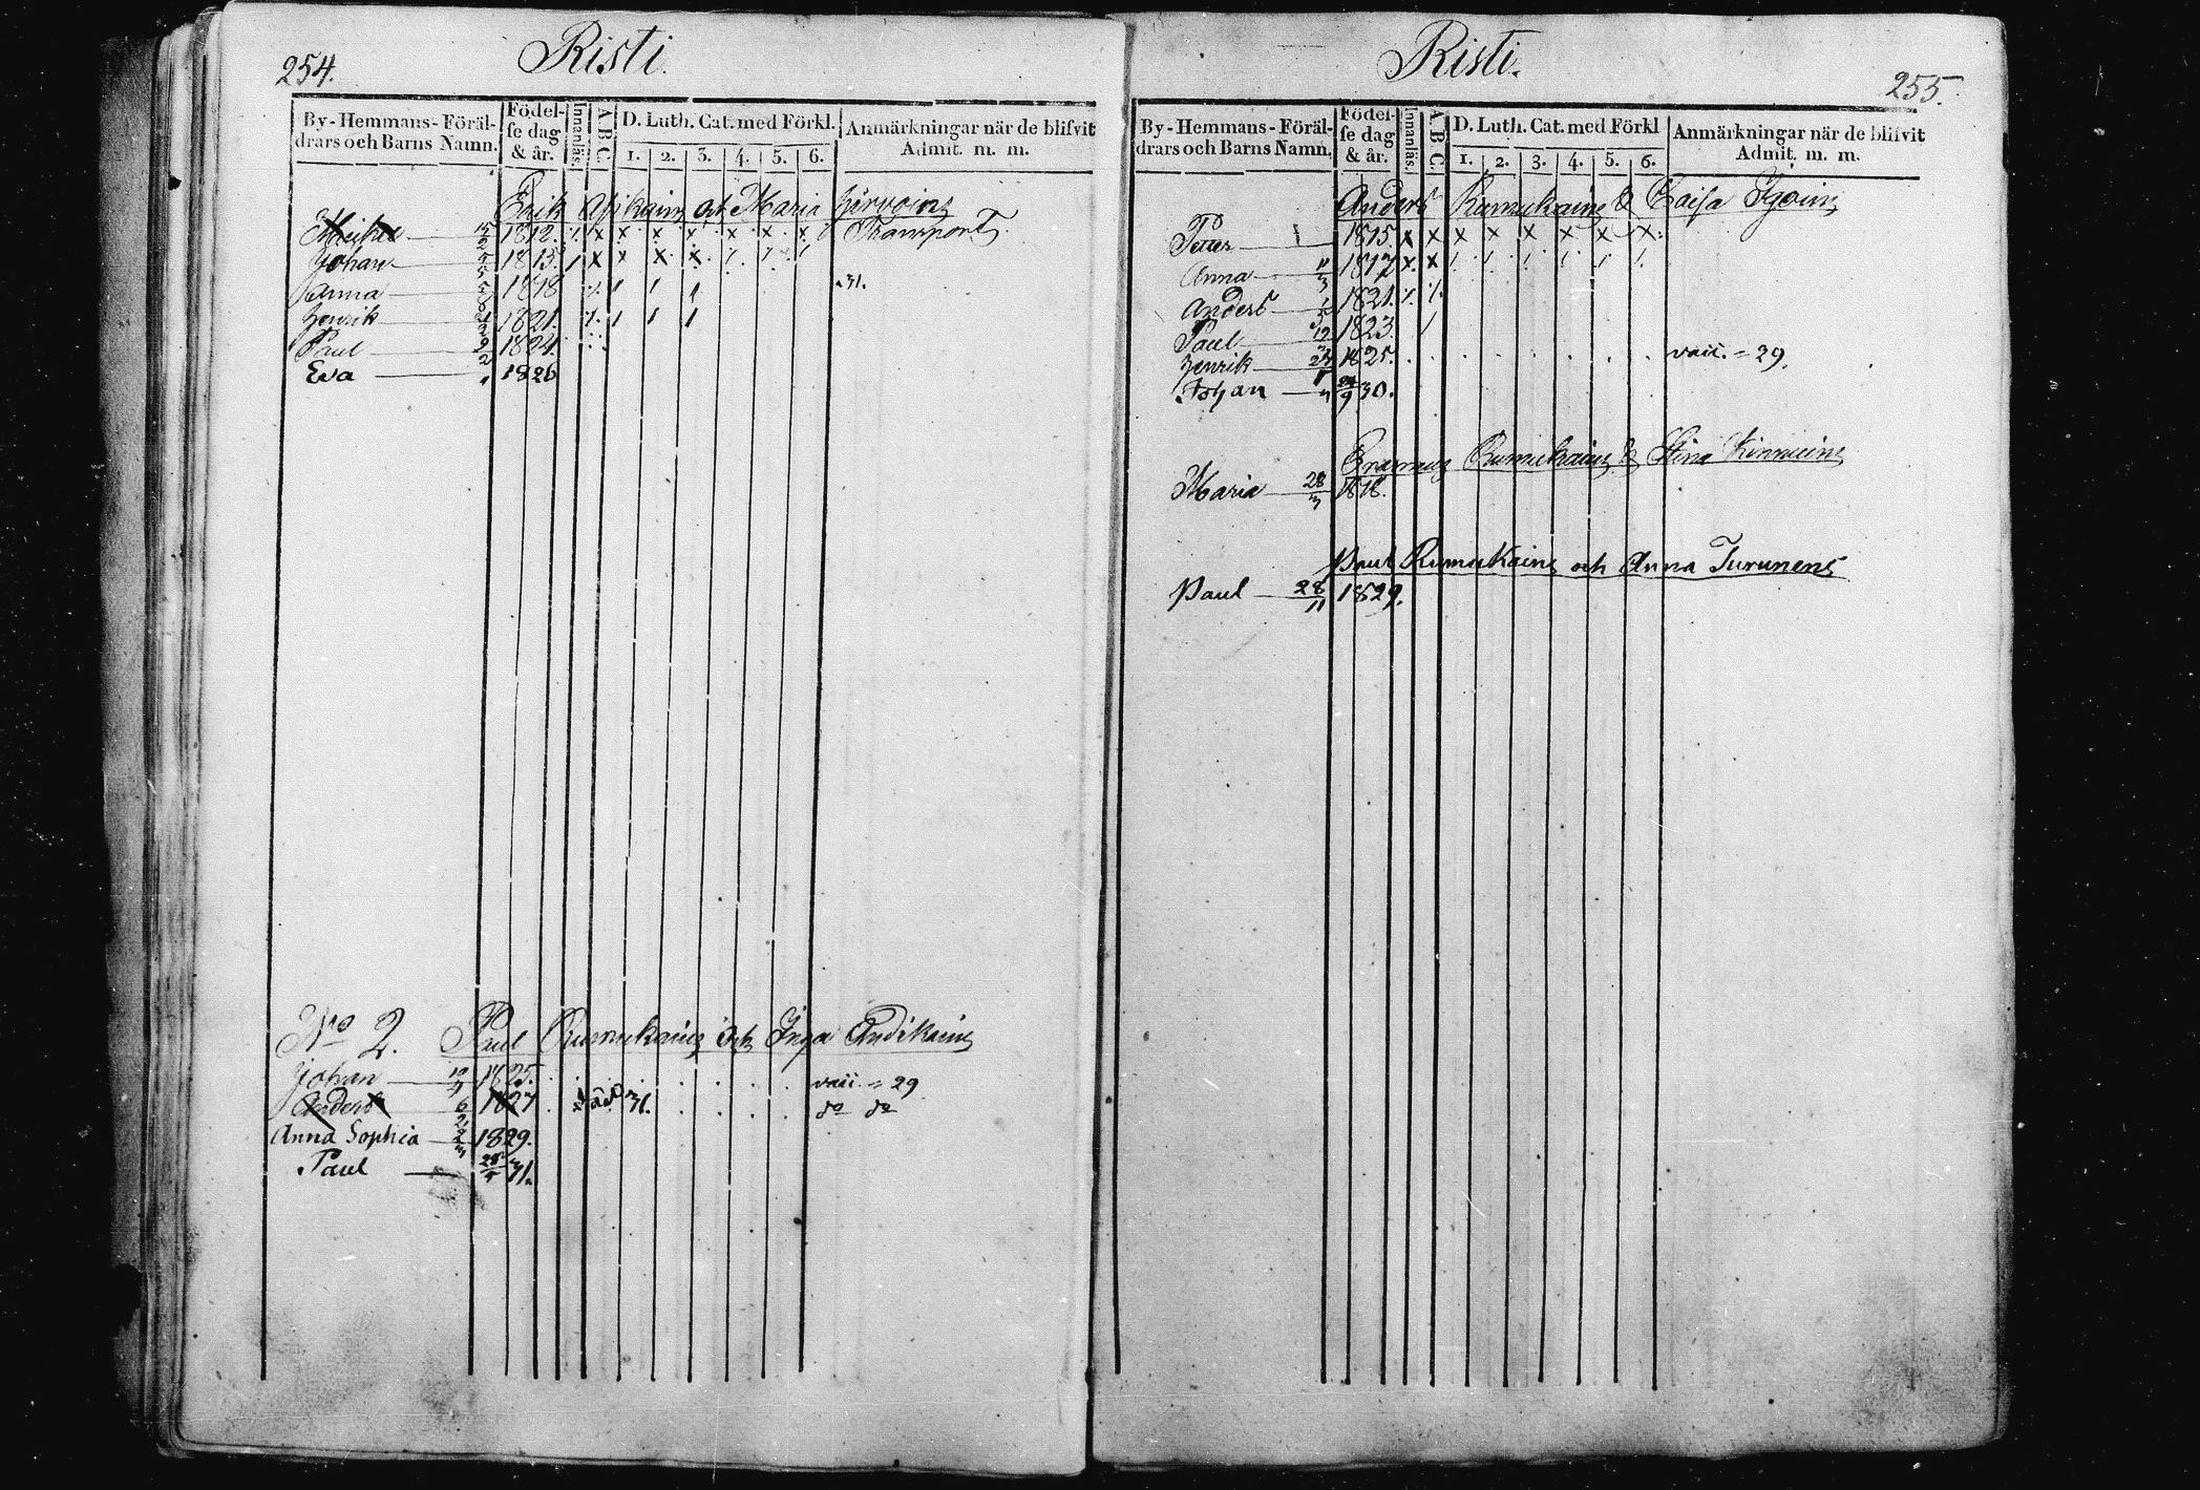 254.
Risti.
By-Hemmans-Föräl-
drars och Barns Namn.
Födel-
se dag
& år.
Innanläs.
A B C.
D. Luth. Cat. med Förkl.
1. 2. 3. 4. 5. 6.
Anmärkningar när de blifvit
Admit. m. m.
Erik och Maria
1812. x x x x x x x Transport.
Johan 1815. x x x x
Anna 1818 .31.
Henrik 1821.
Paul 1824.
Eva 1826
No 2. Paul Rumukain och Inga
Johan 1825. vacc. = 29
Anders 6 1827 död 31. do do
Anna Sophia 1829.
Paul 28/5 31.
Risti.
255.
By-Hemmans-Föräl-
drars och Barns Namn.
Födel-
se dag
& år.
Innanläs.
A B C.
D. Luth. Cat. med Förkl
1. 2. 3. 4. 5. 6.
Anmärkningar när de blifvit
Admit. m. m.
Anders Rumukain & Caisa
Petter 1815. x x x x x x x x
Anna 1817 x x
Anders 1821.
Paul 1823.
Henrik 1825. vacc. = 29.
Johan 24/9 30.
Rumukain & Stina
Maria 28/3 1818.
Paul Rumukains och Anna Turunens
Paul 28/11 1829.